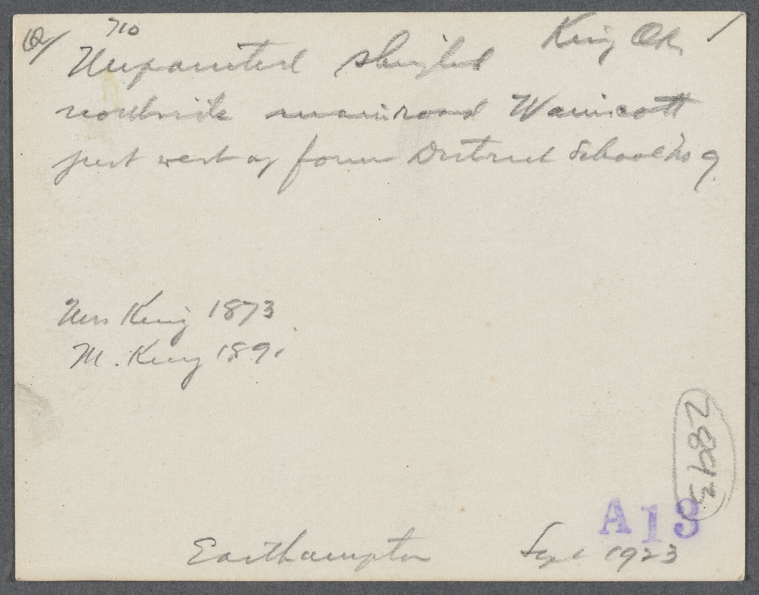 710
King
Unpainted shingled
northside main road Wainscott
just west of former District School No 9
Mrs King 1873
M. King 1891
2893
A19
Easthampton Sept 1923